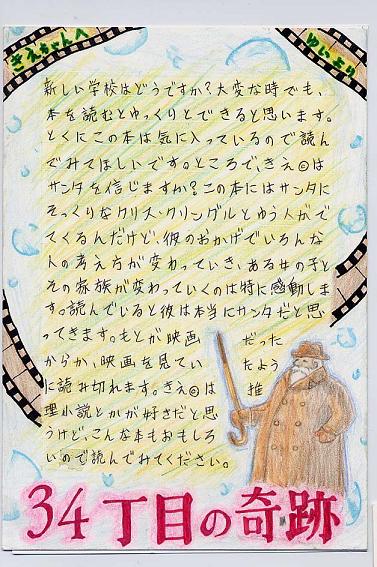 きえちゃんへ
ゆいより
新しい学校はどうですか?大変な時でも、
本を読むとゆっくりとできると思います。
とくにこの本は気に入っているので読ん
でみてほしいです。ところで、きえ©は
サンタを信じますか?この本にはサンタに
そっくりなクリス・クリングルとゆう人がで
てくるんだけど、彼のおかげでいろんな
人の考え方が変わっていき、ある女の子と
その家族が変わっていくのは特に感動しま
す。読んでいると彼は本当にサンタだと思
ってきます。もとが映画 だった
からか、映画を見てい たよう
に読み切れます。きえ©は 推
理小説とかが好きだと思
うけど、こんな本もおもしろ
いので読んでみてください。
34丁目の奇跡